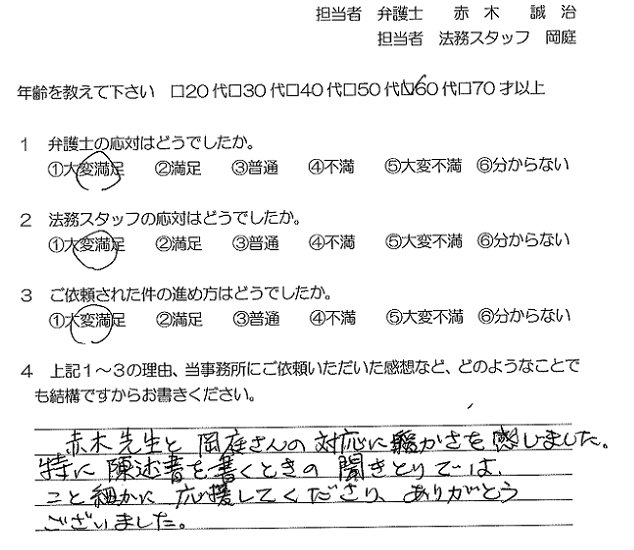 担当者 弁護士 赤木 誠治
担当者 法務スタッフ 岡庭
年齢を教えて下さい □20代□30代□40代□50代☑60代□70才以上
1 弁護士の応対はどうでしたか。
①大変満足 ②満足 ③普通 ④不満 ⑤大変不満 ⑥分からない
2 法務スタッフの応対はどうでしたか。
①大変満足 ②満足 ③普通 ④不満 ⑤大変不満 ⑥分からない
3 ご依頼された件の進め方はどうでしたか。
①大変満足 ②満足 ③普通 ④不満 ⑤大変不満 ⑥分からない
4 上記1～3の理由、当事務所にご依頼いただいた感想など、どのようなことで
も結構ですからお書きください。
赤木先生と岡庭さんの対応に暖かさを感しました。
特に陳述書を書くときの聞きとりでは、
こと細かに応援してくださり、ありがとう
ございました。